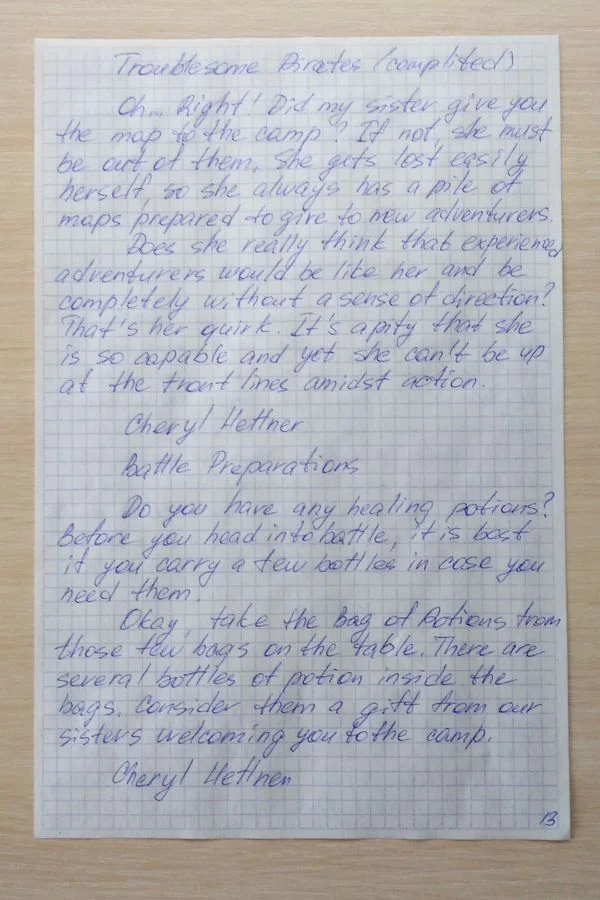 Troublesome Pirates (complited)
Oh... Right! Did my sister give you
the map to the camp? If not, she must
be out of them. She gets lost easily
herself, so she always has a pile of
maps prepared to give to new adventurers.
Does she really think that experienced
adventurers would be like her and be
completely without a sense of direction?
That's her quirk. It's a pity that she
is so capable and yet she can't be up
at the front lines amidst action.
Cheryl Hettner
Battle Preparations
Do you have any healing potions?
Before you head into battle, it is best
if you carry a few bottles in case you
need them.
Okay, take the Bag of Potions from
those few bags on the table. There are
several bottles of potion inside the
bags. Consider them a gift from our
sisters welcoming you to the camp.
Cheryl Hettner
13